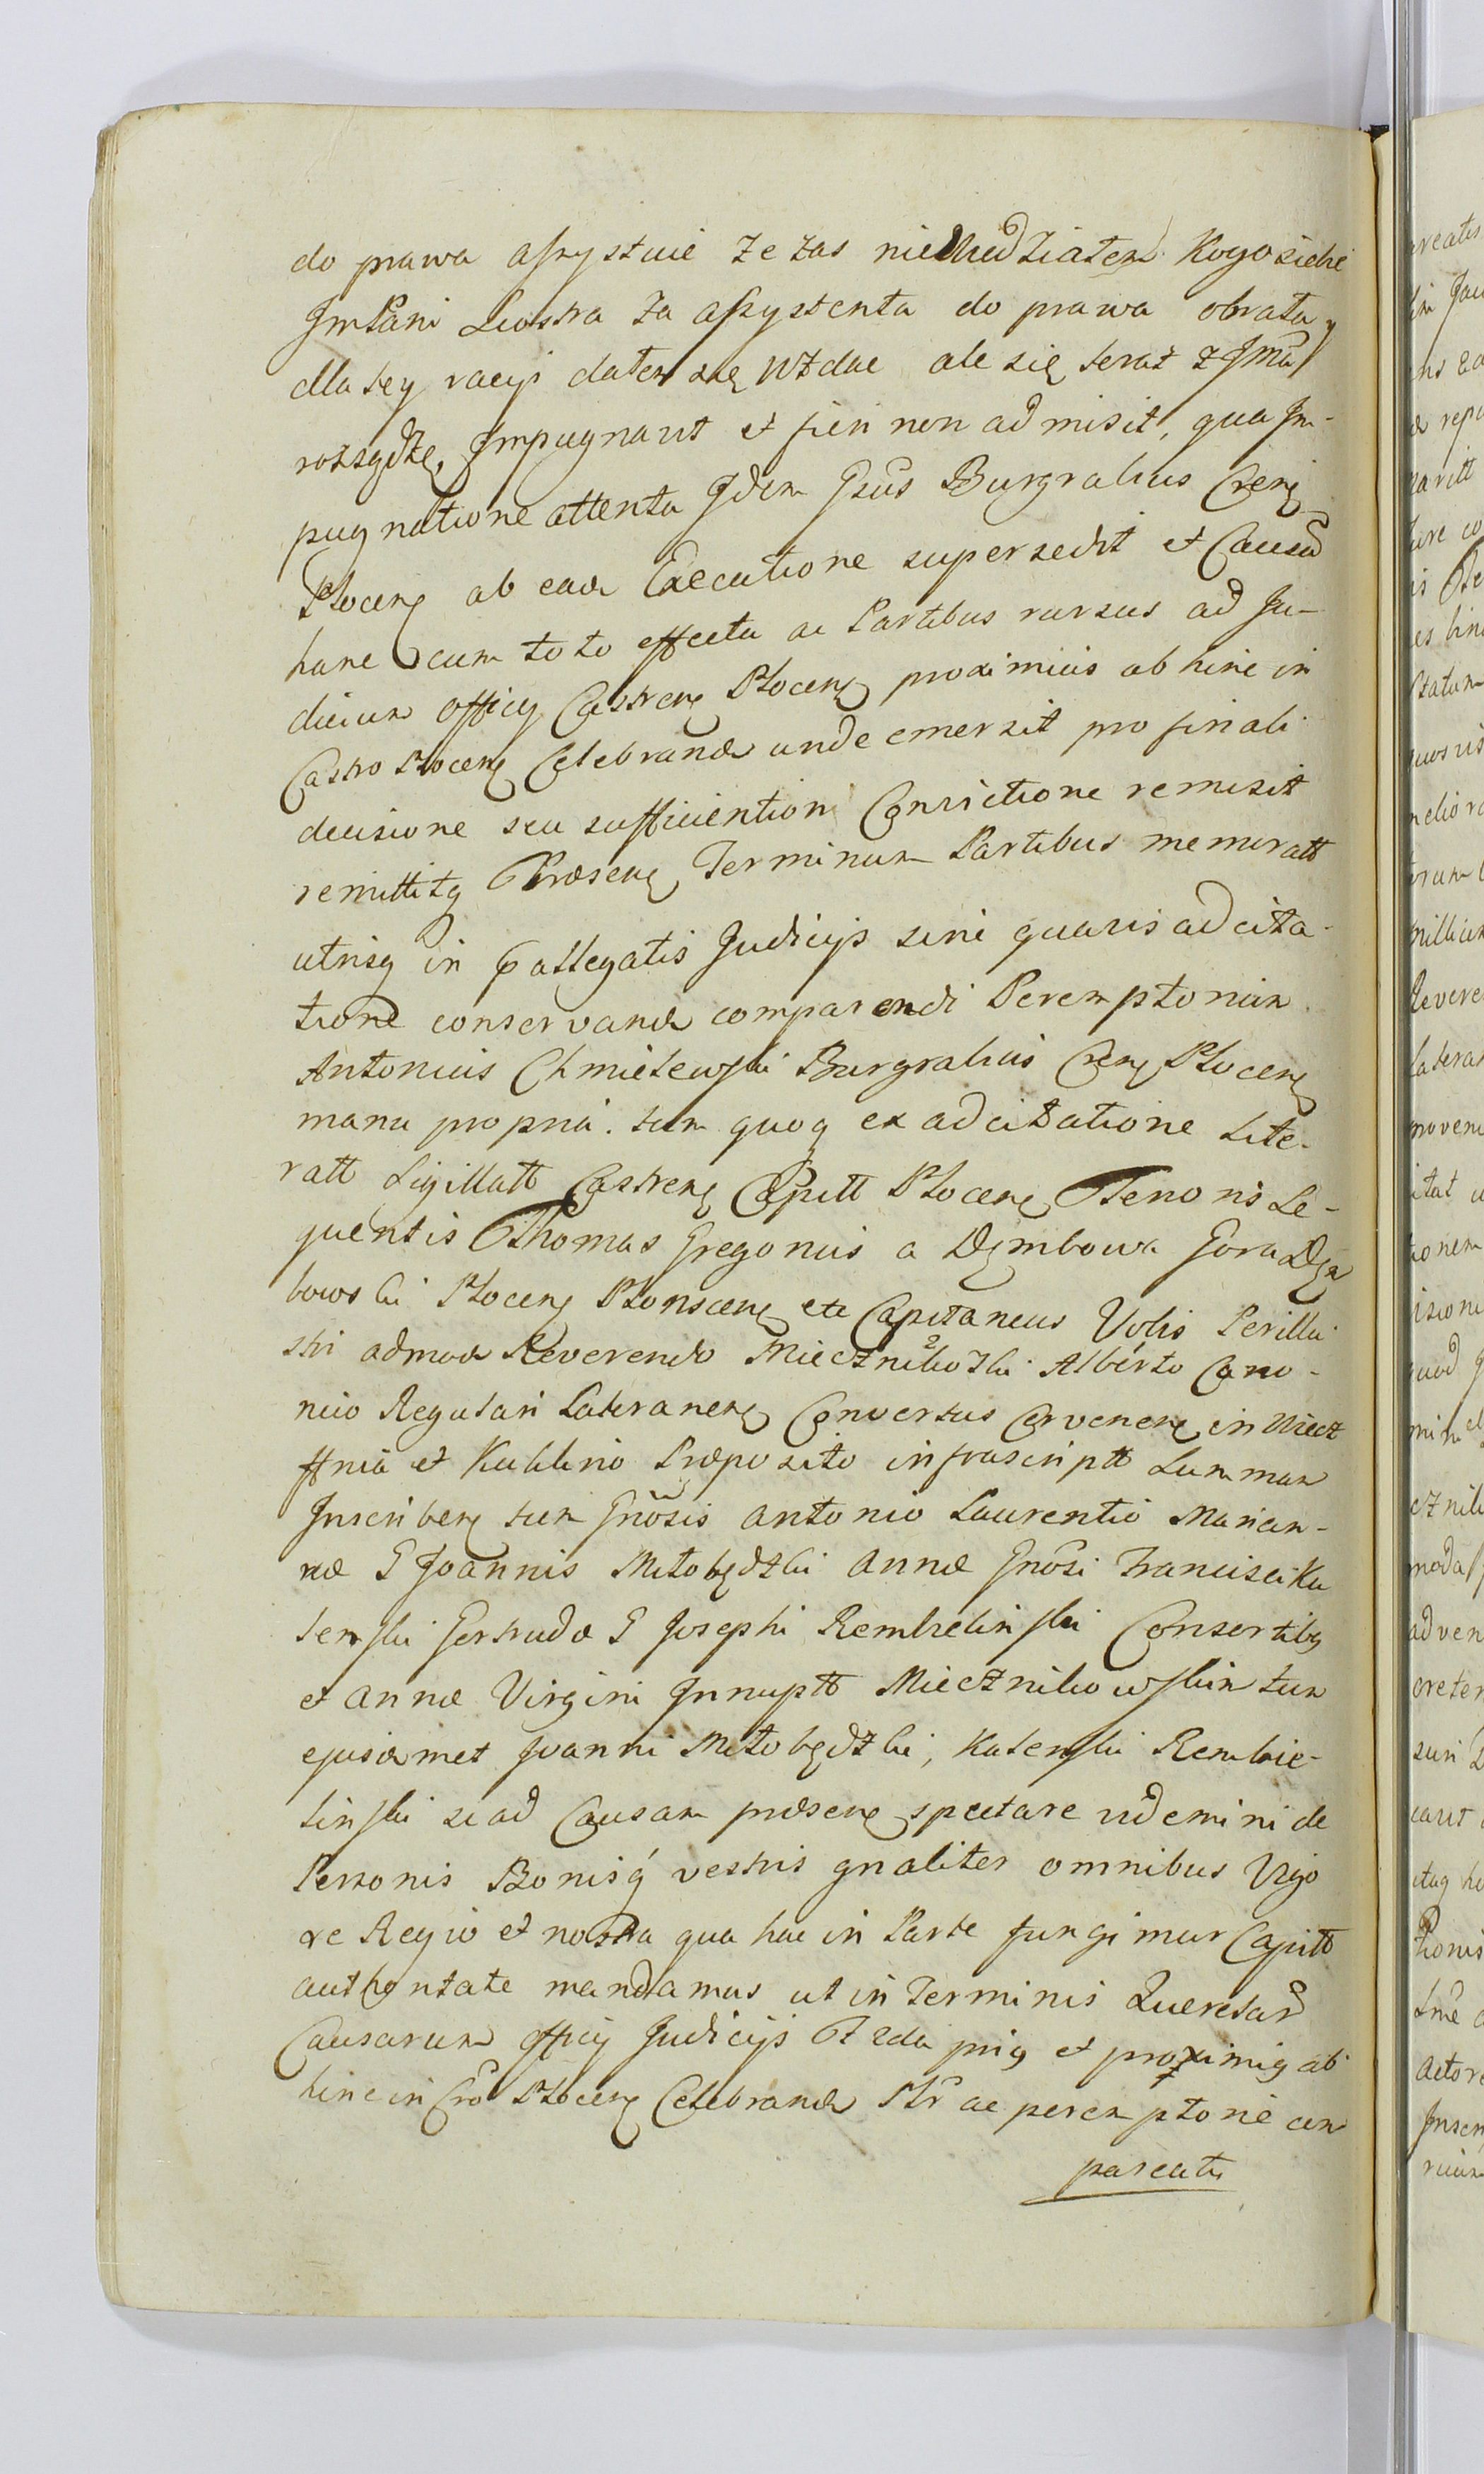 do prawa assystuie że zas niewiedziałem kogo siebie
JmPani Siostra za assystenta do prawa obrała,
dla tey racyi dałem się wzdac ale się teraz z Jmcią
rozsądzę, Impugnavit et fieri non admisit, qua Im-
pugnatione attenta Idem Gsus Burgrabius Crens
Plocens ab eadem Executione supersedit et Causam
hanc cum toto effectu ac Partibus rursus ad Ju-
dicium officij Castrens Plocens proximius ab hinc in
Castro Plocens Celebrand unde emersit pro finali
decisione seu sufficientiori Convictione remisit
remittitq Praesens Terminum Partibus memoratt
utrisq in praeallegatis Judicijs sine quavis adcita-
tione conservand comparendi Peremptorium
Antonius Chmielewski Burgrabius Crens Plocens
manu propria. tum quoq ex adcitatione Lite-
ratt Sigillatt Castrens Capitt Plocens Tenoris Se-
quentis Thomas Gregorius a Dęmbowa Gora Dęm
bowski Plocens Plonscens etc Capitaneus Vobis Perillu
stri admod Reverendo Miecznikowski Alberto Cano-
nico Regulari Lateranens Conventus Cervenens in Miecz
ffnia et Kuklino Praeposito infrascriptt Summam
Inscribens tum Gnosis Antonio Laurentio Marian-
nae G Joannis Miłobędzki Annae Gnosi Francisci Ka
lenski Gertrudae G Josephi Rembielinski Consortibq
et Annae Virgini Innuptt Miecznikowskim tum
ejusdemet Joanni Miłobędzki, Kalenski Rembie-
linski si ad Causam praesens spectare videmini de
Personis Bonisq vestris gnaliter omnibus Vigo
re Regio et nostra qua hac in Parte fungimur Capitt
authoritate mandamus ut in Terminis Querelar
Causarum officij Judicijs priq et proximiq ab
hinc in Cro Plocens Celebrand Ptr ac peremptorie com
pareatis